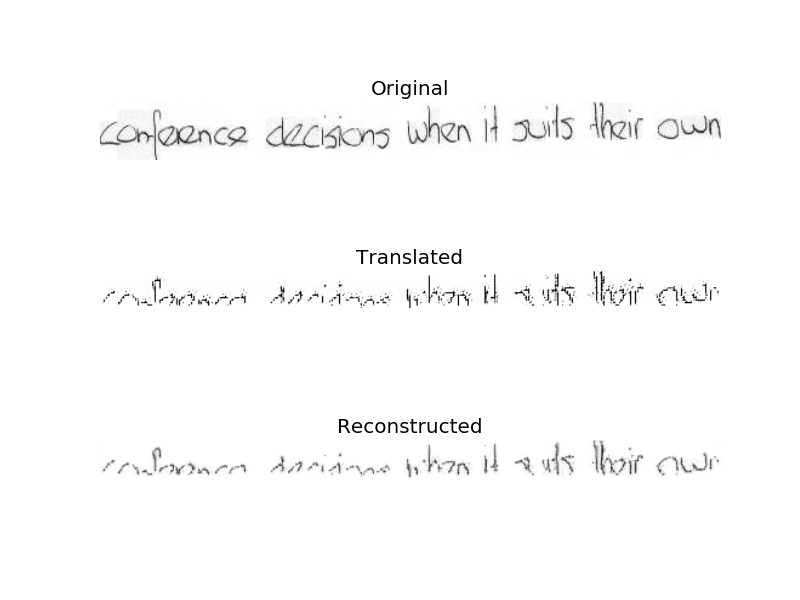 Original
conference decisions when it suits their own
Translated
conference decisions when it suits their own
Reconstructed
conference decisions when it suits their own